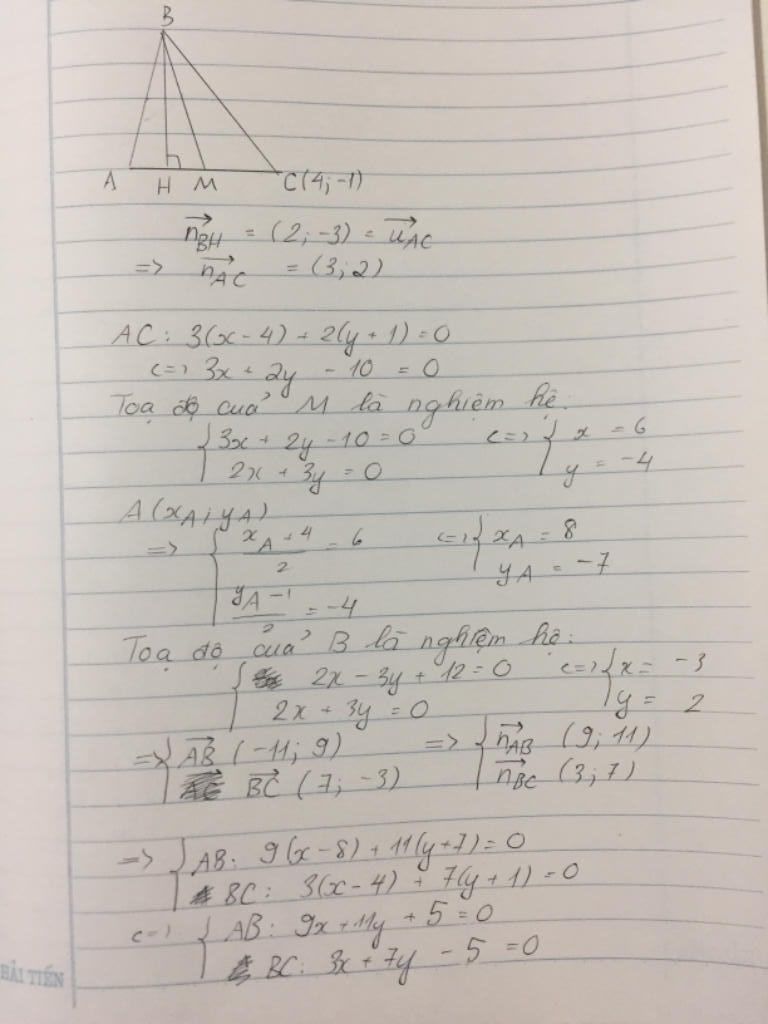 B
A H M C(4;-1)
n_BH = (2;-3) = u_AC
=> n_AC = (3;2)
AC: 3(x-4)+2(y+1)=0
<=> 3x+2y-10=0
Toạ độ của M là nghiệm hệ:
{3x+2y-10=0 <=> {x=6
2x+3y=0 y=-4
A(xA;yA)
=> {(xA+4)/2=6 <=> {xA=8
(yA-1)/2=-4 yA=-7
Toạ độ của B là nghiệm hệ:
{2x-3y+12=0 <=> {x=-3
2x+3y=0 y=2
=> {AB(-11;9) => {n_AB(9;11)
BC(7;-3) n_BC(3;7)
=> {AB: 9(x-8)+11(y+7)=0
BC: 3(x-4)+7(y+1)=0
<=> {AB: 9x+11y+5=0
BC: 3x+7y-5=0
HẢI TIẾN